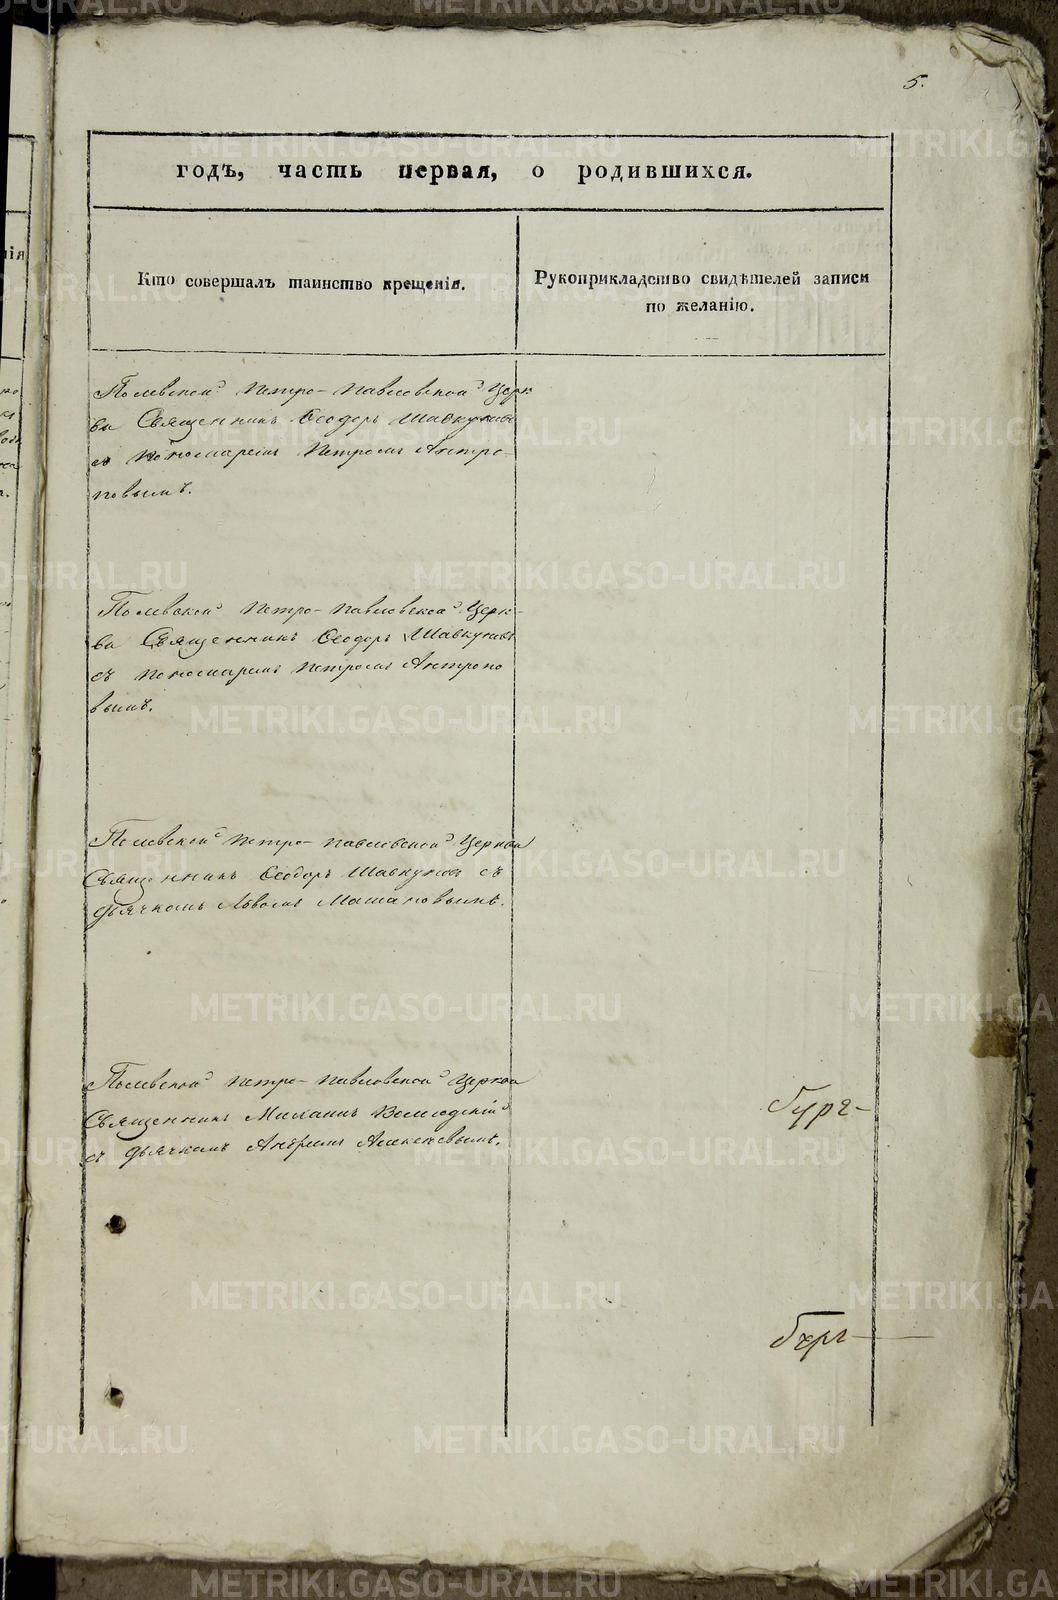 5.
годъ, часть первая, о родившихся.
Кто совершалъ таинство крещенія.
Рукоприкладство свидѣтелей записи
по желанію.
Полевской Петро-Павловской Церк
ви Священникъ Ѳеодоръ Шавкуновъ
съ пономаремъ Петромъ Антро-
повымъ.
Полевской Петро-Павловской Церк-
ви Священникъ Ѳеодоръ Шавкуновъ
съ пономаремъ Петромъ Антропо
вымъ.
Полевской Петро-Павловской Церкви
Священникъ Ѳеодоръ Шавкуновъ съ
дьячкомъ Львомъ
Полевской Петро-Павловской Церкви
Священникъ Михаилъ
съ дьячкомъ Андреемъ
METRIKI.GASO-URAL.RU